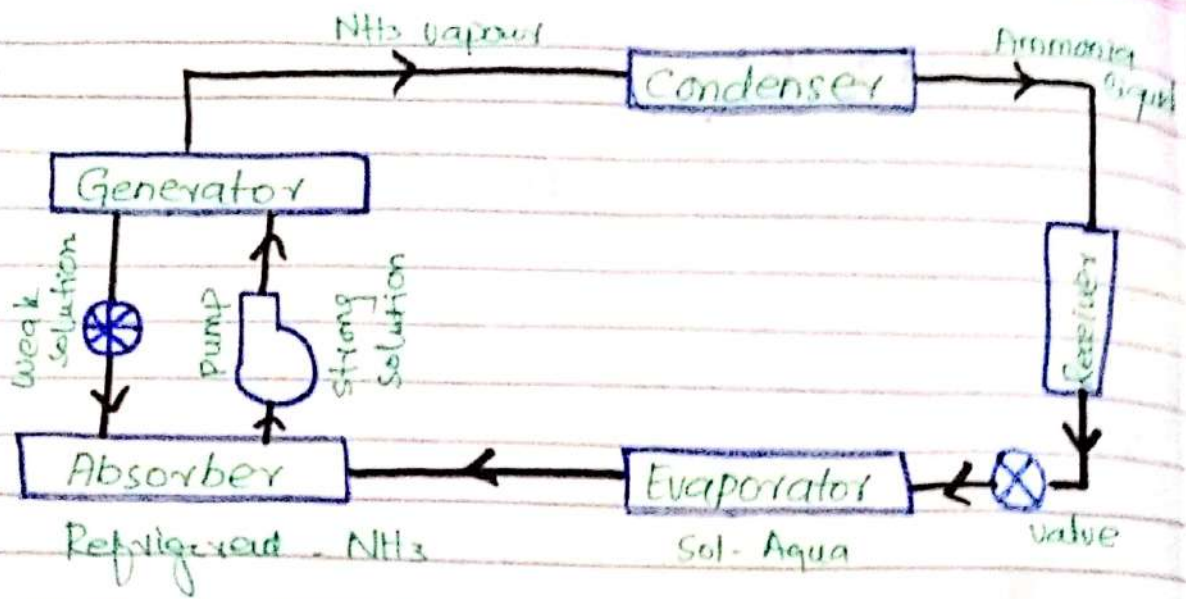 NH3 vapour
Ammonia
liquid
Condenser
Generator
Weak
Solution
Pump
Strong
Solution
Receiver
Absorber
Evaporator
valve
Refrigerad - NH3
Sol - Aqua